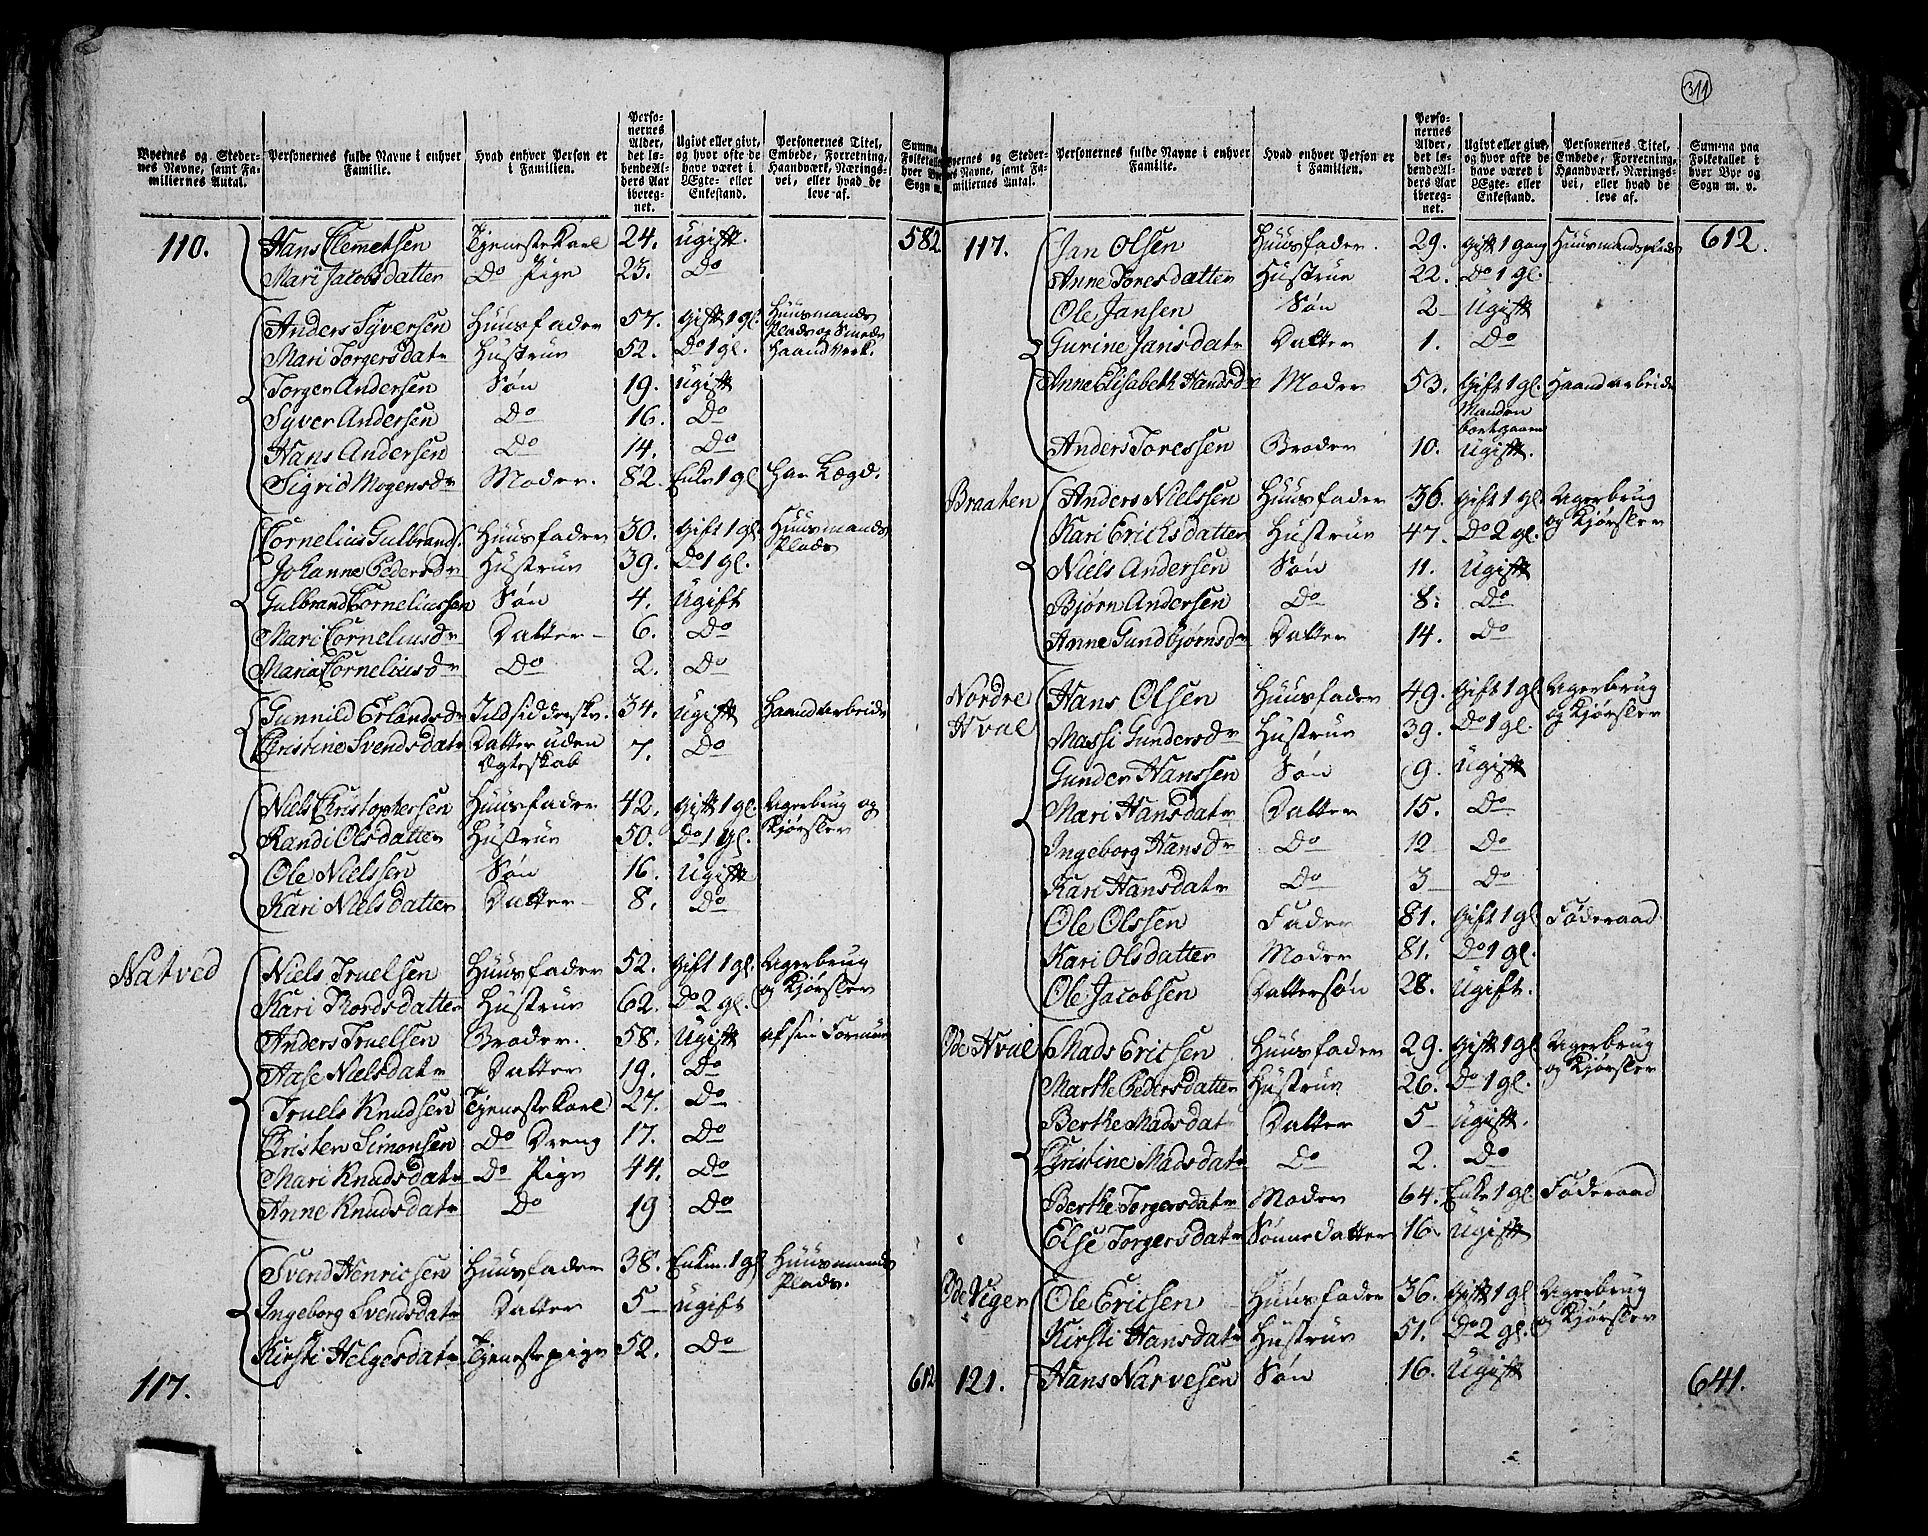 311
Byernes og Steder-
nes Navne, samt Fa-
miliernes Antal.
Personernes fulde Navne i enhver
Familie.
Hvad enhver Person er
i Familien.
Perso-
nernes
Alder,
det lø-
bende Al-
ders Aar
iberegn-
net.
Ugivt eller givt,
og hvor ofte de
have været i
Ægte- eller
Enkestand.
Personernes Titel,
Embede, Forretning,
Haandværk, Nærings-
vei, eller hvad de
leve af.
Summa
Folketallet
hver Bye
Sogn m.
110. Hans Clemetsen Tjenestekarl 24. ugift. 582
Mari Jacobsdatter Do Pige 23. Do
Anders Syversen Huusfader 57. Gift 1 gl. Huusmands
Plads og Smede
Mari Torgersdatr Hustrue 52. Do 1 gl. Haandverk.
Torger Andersen Søn 19. ugift
Syver Andersen Do 16. Do
Hans Andersen Do 14. Do
Sigrid Mogensdr Moder. 82. Enke 1 gl Har Lægd.
Cornelius Gulbrands. Huusfader 30. Gift 1 gl. Huusmands
Plads
Johanne Pedersdr Hustrue 39. Do 1 gl.
Gulbrand Corneliussen Søn 4. Ugift
Mari Corneliusdr Datter 6. Do
Maria Corneliusdr Do 2. Do
Gunnild Erlandsdr Indsidderske. 34. ugift Haandarbeide
Christine Svendsdatr Datter uden
Ægteskab 7. Do
Niels Christophersen Huusfader 42. Gift 1 gl. Agerbrug og
Kjørsler
Randi Olsdatter Hustrue 50. Do 1 gl.
Ole Nielssen Søn 16. Ugift
Kari Nielsdatter Datter 8. Do
Natved Niels Truelsen Huusfader 52. Gift 1 gl. Agerbrug
og Kjørsler
Kari Thordsdatter Hustrue 62. Do 2 gl.
Anders Truelsen Broder. 58. Ugift af sin Formue
Aase Nielsdatr Datter 19. Do
Truels Knudsen Tjenestekarl 27. Do
Christen Simonsen Do Dreng 17. Do
Mari Knudsdatr Do Pige 44. Do
Anne Knudsdatr Do 19 Do
Svend Henricsen Huusfader 38. Enkm. 1 gl Huusmands
Plads.
Ingeborg Svendsdatr Datter 5 ugift
Kirsti Helgesdatr Tjenestepige 52. Do
117. 612
Byernes og Steder-
nes Navne, samt Fa-
miliernes Antal.
Personernes fulde Navne i enhver
Familie.
Hvad enhver Person er
i Familien.
Perso-
nernes
Alder,
det lø-
bende Al-
ders Aar
iberegn-
net.
Ugivt eller givt,
og hvor ofte de
have været i
Ægte- eller
Enkestand.
Personernes Titel,
Embede, Forretning,
Haandværk, Nærings-
vei, eller hvad de
leve af.
Summa paa
Folketallet i
hver Bye og
Sogn m. v.
117. Jan Olsen Huusfader. 29. Gift 1 gang Huusmandsplads 612.
Anne Toresdatter Hustrue 22. Do 1 gl.
Ole Jansen Søn 2 Ugift
Gurine Jansdatr Datter 1. Do
Anne Elisabeth Hansdr Moder 53. Gift 1 gl. Haandarbeide
Manden
bortgaaen
Anders Toressen Broder 10. Ugift.
Braaten Anders Nielssen Huusfader 36. Gift 1 gl Agerbrug
og Kjørsler
Kari Erichsdatter Hustrue 47. Do 2 gl.
Niels Andersen Søn 11. Ugift
Bjørn Andersen Do 8. Do
Anne Gundbjørnsdr Datter 14. Do
Nordre
Hval Hans Olsen Huusfader 49. Gift 1 gl Agerbrug
og Kjørsler
Massi Gundersdr Hustrue 39. Do 1 gl.
Gunder Hanssen Søn 9. Ugift
Mari Hansdatr Datter 15. Do
Ingeborg Hansdr Do 12 Do
Kari Hansdatr Do 3 Do
Ole Olssen Fader 81. Gift 1 gl Føderaad
Kari Olsdatter Moder 81. Do 1 gl.
Ole Jacobsen Dattersøn 28. Ugift.
Øde Hval Mads Ericsen Huusfader 29. Gift 1 gl Agerbrug
og Kjørsler
Marthe Pedersdatter Hustrue 26. Do 1 gl.
Berthe Madsdatr Datter 5 Ugift.
Christine Madsdatr Do 2. Do
Berthe Torgersdatr Moder 64. Enke 1 gl. Føderaad
Else Torgersdatr Sønnedatter 16. Ugift
Øde Veger Ole Ericsen Huusfader 36. Gift 1 gl Agerbrug
og Kjørsler
Kirsti Hansdatr Hustrue 51. Do 2 gl.
121. Hans Narvesen Søn 16. Ugift 641.